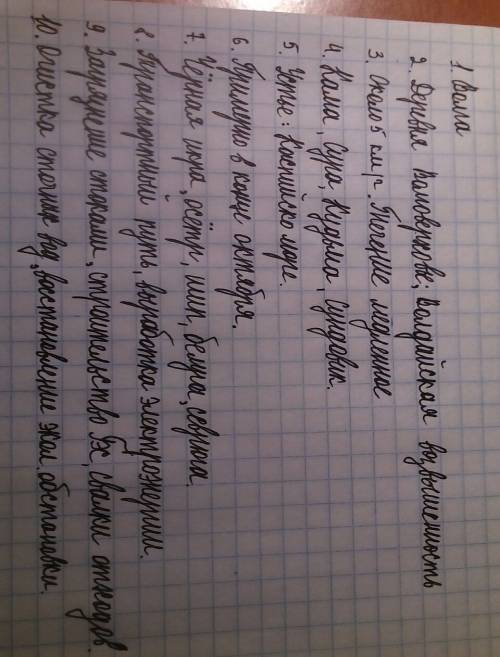 1. Волга
2. Деревня Волговерховье; Валдайская возвышенность
3. Около 5 км/г. Течение медленное
4. Кама, Сура, Кудьма, Сундовик.
5. Устье: Каспийско море.
6. Примерно в конце октября.
7. Чёрная икра, осётр, шип, белуга, севрюга.
8. Транспортный путь, выработка электроэнергии.
9. Загрязнение стоками, строительство ГЭС, свалки отходов.
10. Очистка сточных вод, востановление экол. обстановки.